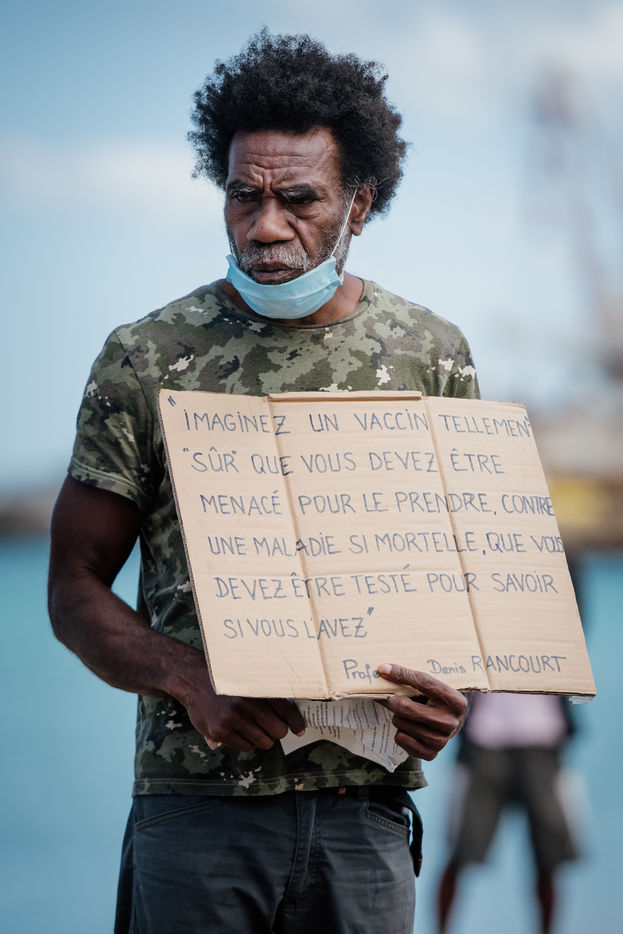 "IMAGINEZ UN VACCIN TELLEMENT
"SÛR" QUE VOUS DEVEZ ÊTRE
MENACÉ POUR LE PRENDRE, CONTRE
UNE MALADIE SI MORTELLE, QUE VOUS
DEVEZ ÊTRE TESTÉ POUR SAVOIR
SI VOUS L'AVEZ"
Denis RANCOURT